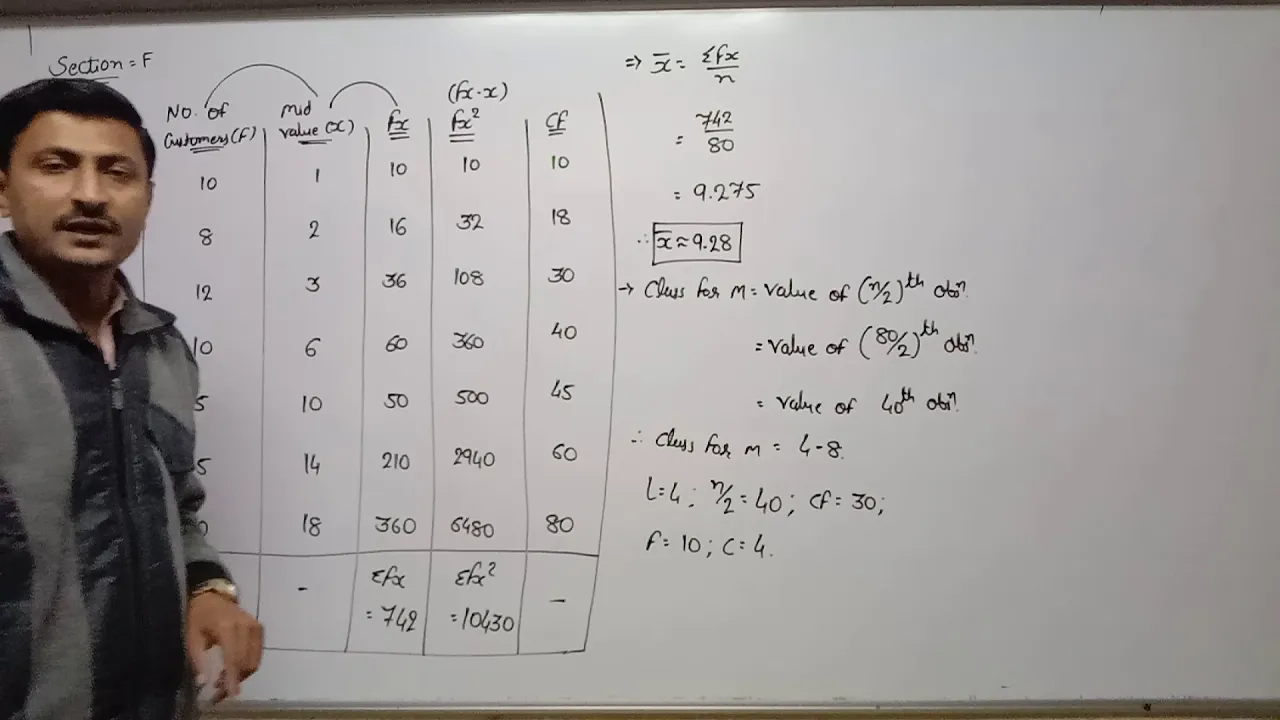 Section = F
No. of Customers (F) | Mid value (x) | fx | (fx·x) fx² | CF
10 | 1 | 10 | 10 | 10
8 | 2 | 16 | 32 | 18
12 | 3 | 36 | 108 | 30
10 | 6 | 60 | 360 | 40
5 | 10 | 50 | 500 | 45
5 | 14 | 210 | 2940 | 60
0 | 18 | 360 | 6480 | 80
- | Σfx = 742 | Σfx² = 10430 | -
⇒ x̄ = Σfx/n
= 742/80
= 9.275
∴ x̄ ≈ 9.28
→ Class for M = value of (n/2)th obsⁿ.
= value of (80/2)th obsⁿ.
= value of 40th obsⁿ.
∴ Class for M = 4-8.
L=4; n/2 = 40; CF = 30;
F = 10; C = 4.